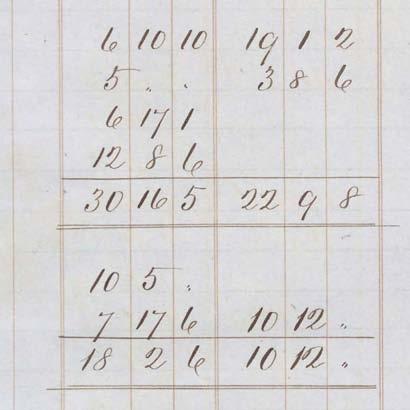 6 10 10 19 1 2
5 " " 3 8 6
6 17 1
12 8 6
30 16 5 22 9 8
10 5 "
7 17 6 10 12 "
18 2 6 10 12 "